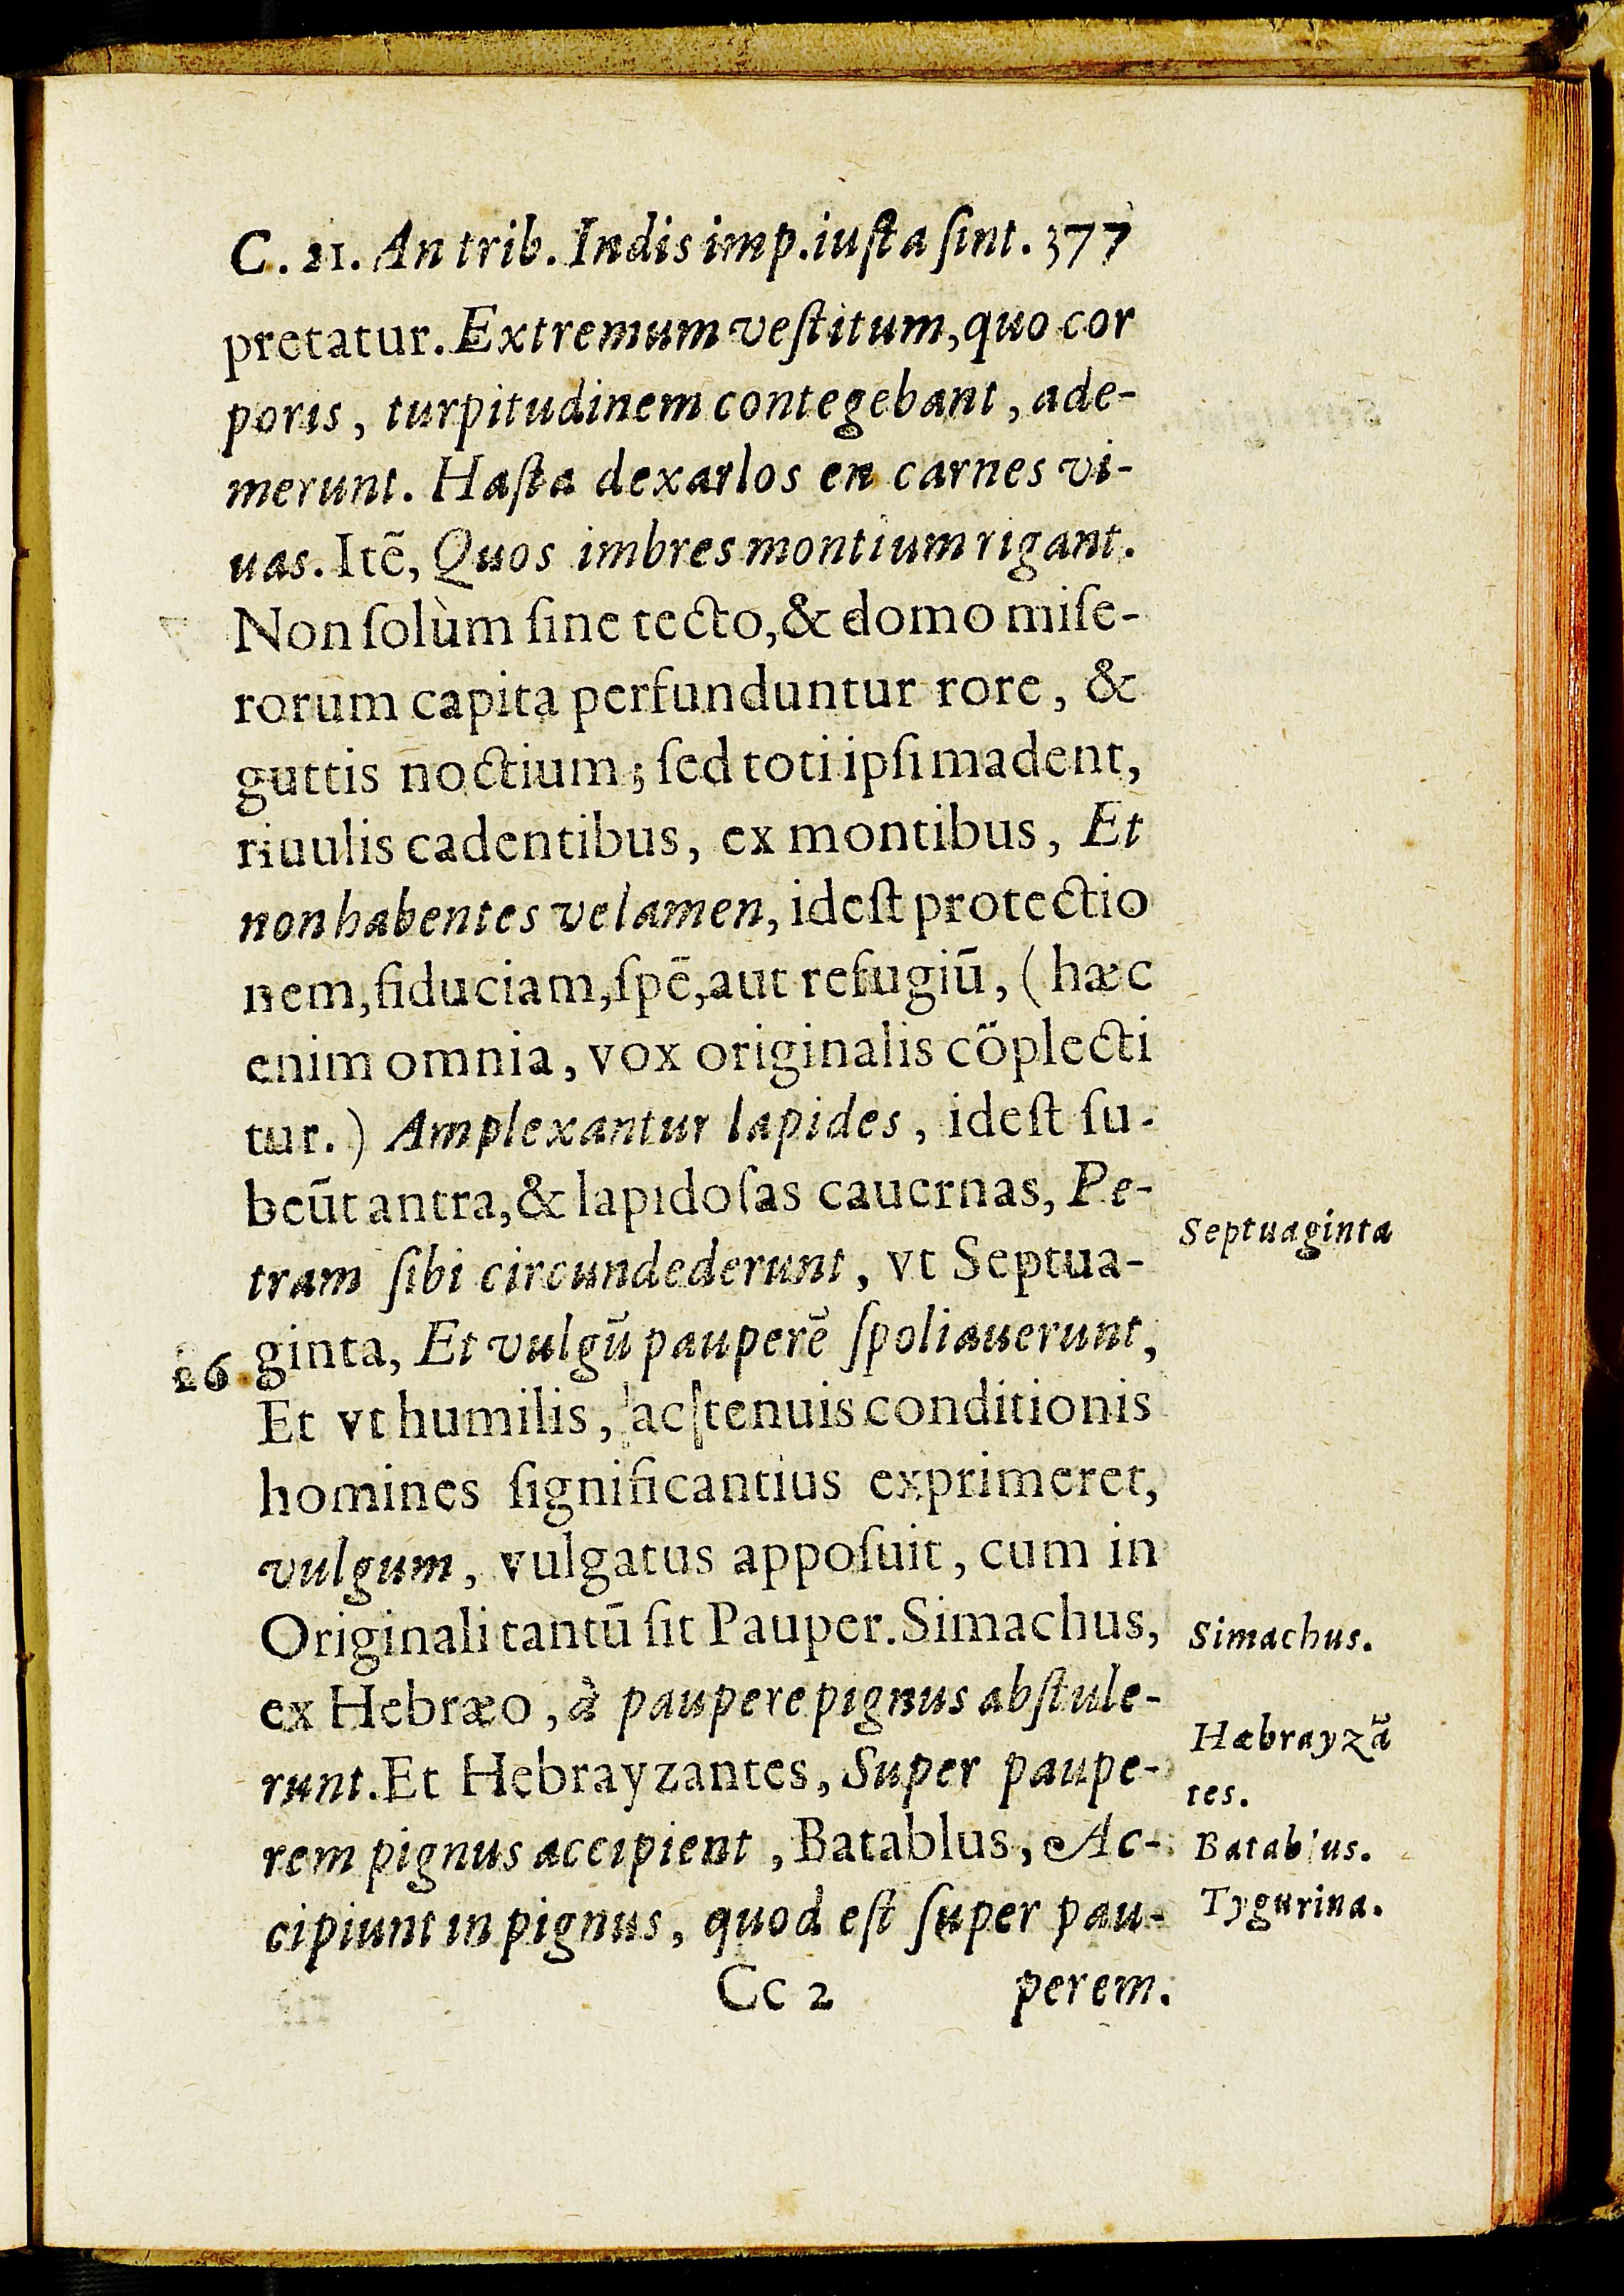 C. 21. An trib. Indis imp. iuſta ſint. 377
pretatur. Extremum veſtitum, quo cor
poris, turpitudinem contegebant, ade-
merunt. Haſta dexarlos en carnes vi-
uas. Itē, Quos imbres montium rigant.
Non ſolùm ſine tecto, & domo miſe-
rorum capita perfunduntur rore, &
guttis noctium; ſed toti ipſi madent,
riuulis cadentibus, ex montibus, Et
non habentes velamen, ideſt protectio
nem, fiduciam, ſpē, aut refugiū, (hæc
enim omnia, vox originalis cōplecti
tur.) Amplexantur lapides, ideſt ſu-
beūt antra, & lapidoſas cauernas, Pe-
tram ſibi circundederunt, vt Septua-
Septuaginta
26 ginta, Et vulgū pauperē ſpoliauerunt,
Et vt humilis, ac tenuis conditionis
homines ſignificantius exprimeret,
vulgum, vulgatus appoſuit, cum in
Originali tantū ſit Pauper. Simachus,
Simachus.
ex Hebræo, à paupere pignus abſtule-
runt. Et Hebrayzantes, Super paupe-
Hæbrayzā
tes.
rem pignus accipient, Batablus, Ac-
Batablus.
cipiunt in pignus, quod eſt ſuper pau-
Tygurina.
Cc 2 perem.